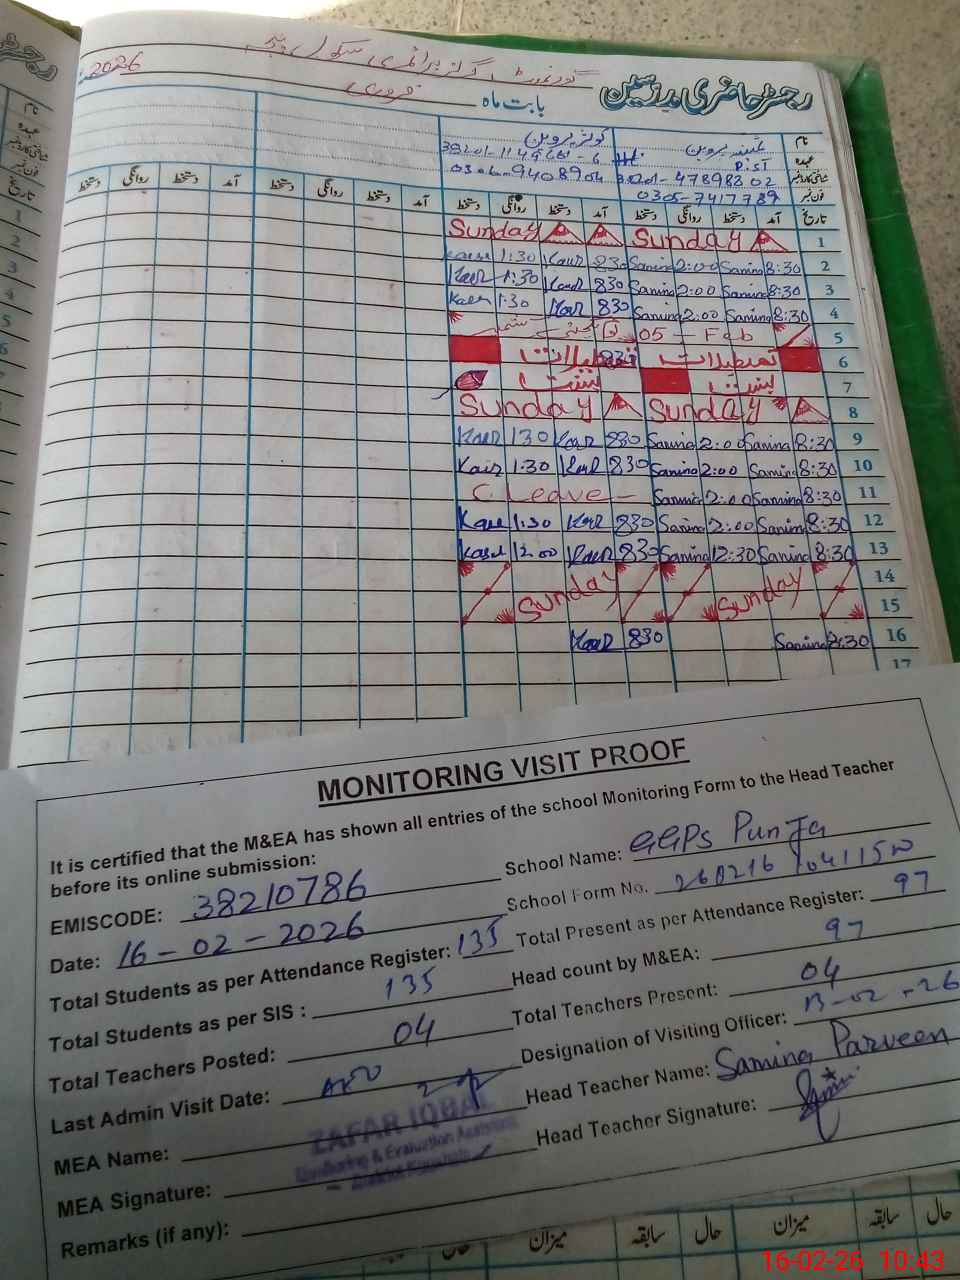 رجسٹر حاضری مدرسین
گورنمنٹ گرلز پرائمری سکول پنجہ
بابت ماہ فروری 2026
نام ثمینہ پروین کوثر پروین
عہدہ P.ST
شناختی کارڈ نمبر
فون نمبر 0305-7417789 0306-9408904
تاریخ آمد دستخط روانگی دستخط آمد دستخط روانگی دستخط آمد دستخط روانگی دستخط آمد دستخط روانگی دستخط
1 Sunday Sunday
2 8:30 Samina 2:00 Samina 830 Kausr 1:30
3 8:30 Samina 2:00 Samina 830 Kausr 1:30
4 8:30 Samina 2:00 Samina 830 Kausr 1:30
5 05 - Feb
6 تعطیلات تعطیلات
7 بسنت بسنت
8 Sunday Sunday
9 8:30 Samina 2:00 Samina 830 Kausr 130
10 8:30 Samina 2:00 Samina 830 Kausr 1:30
11 8:30 Samina 2:00 Samina C. Leave -
12 8:30 Samina 2:00 Samina 830 Kausr 1:30
13 8:30 Samina 12:30 Samina 830 Kausr 12.00
14 Sunday Sunday
15
16 8:30 Samina 830 Kausr
17
MONITORING VISIT PROOF
It is certified that the M&EA has shown all entries of the school Monitoring Form to the Head Teacher
before its online submission:
School Name: GGPS Punja
EMISCODE: 38210786
School Form No. 260216
Date: 16-02-2026
Total Students as per Attendance Register: 135
Total Present as per Attendance Register: 97
Total Students as per SIS : 135
Head count by M&EA: 97
Total Teachers Posted: 04
Total Teachers Present: 04
Last Admin Visit Date: AEO
Designation of Visiting Officer: 13-02-26
MEA Name:
Head Teacher Name: Samina Parveen
ZAFAR IQBAL
Monitoring & Evaluation Assistant
MEA Signature:
Head Teacher Signature:
Remarks (if any):
حال سابقہ میزان حال سابقہ میزان حال
16-02-26 10:43